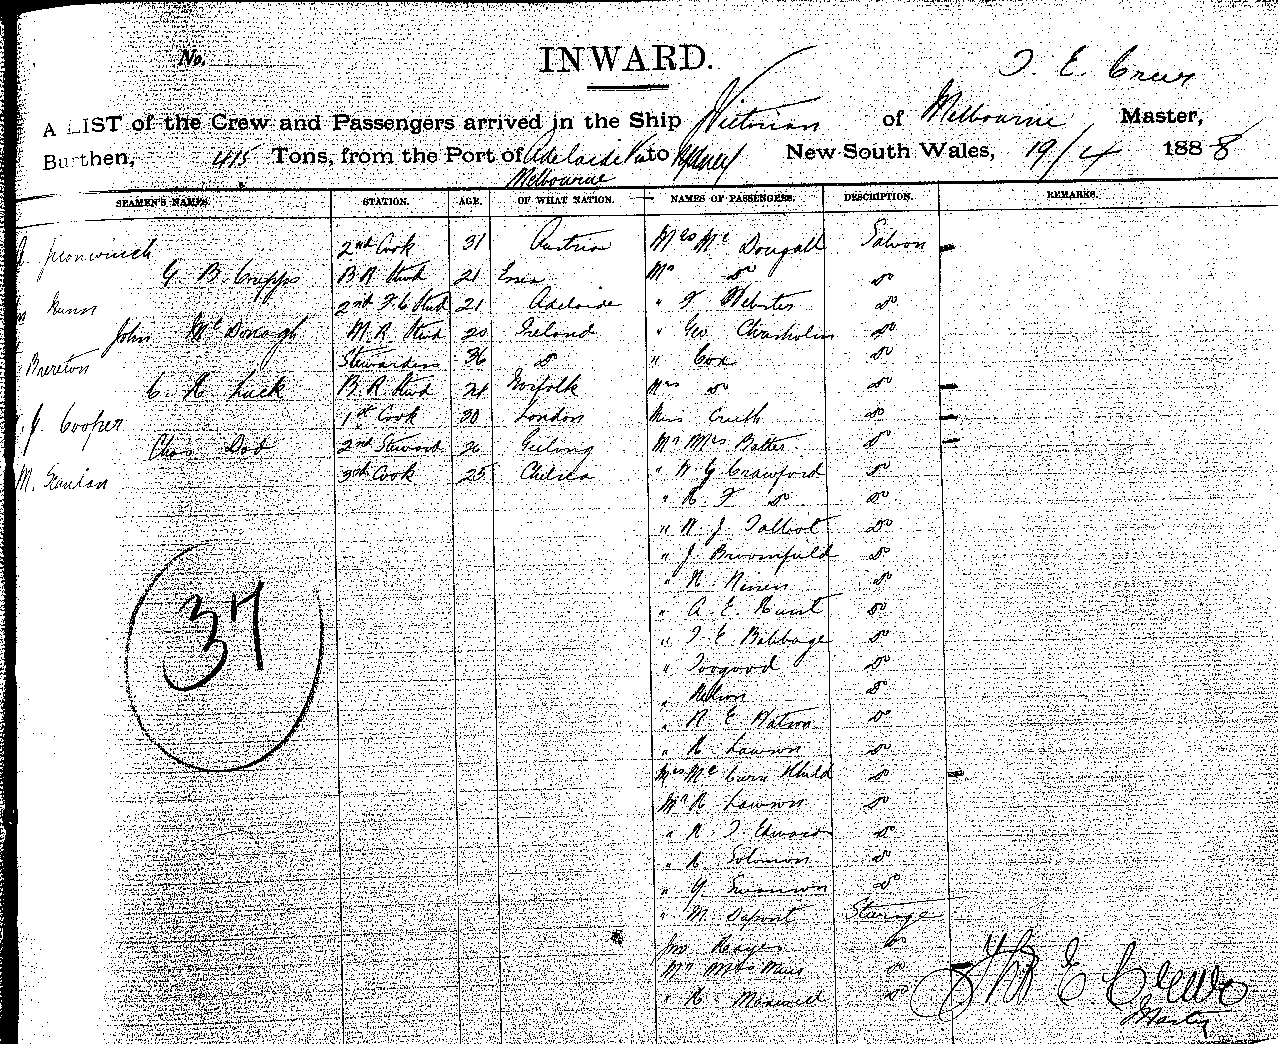 No.
INWARD.
T. E. Crews
A LIST of the Crew and Passengers arrived in the Ship Victorian of Melbourne Master,
Burthen, 415 Tons, from the Port of Adelaide via to Sydney New South Wales, 19/4 1888
Melbourne
SEAMEN'S NAMES. STATION. AGE. OF WHAT NATION. NAMES OF PASSENGERS. DESCRIPTION. REMARKS.
2nd Cook 31 Austria Mrs Mc Dougall Saloon
G. B. Cripps B. R. Stwd 21 Mr do do
Gunn 2nd F. C. Stwd 21 Adelaide " F Webster do
John McDonagh M. R. Stwd 20 Ireland " Geo Chrisholm do
Brereton Stewardess 36 do " Cox do
C. R. Luck B. R. Stwd 21 Norfolk Mrs do do
J. Cooper 1st Cook 30 London Miss do
Chas Dod 2nd Steward 26 Geelong Mr Mrs do
M. Scanlan 3rd Cook 25 Chelsea " W G Crawford do
" R F do do
" W. J. Talbot do
" J Broomfield do
" R do
" A. E. Hunt do
" T E Babbage do
" Toogood do
" do
" R E Watson do
" R Lawson do
Mrs Mc Child do
Mr R Lawson do
" R T Edwards do
" R Solomon do
" G Swanson do
" M. Dupont Steerage
Jno Hayes do
Mr Mrs do
" R Maxwell do
37
Thos E Crews
Master